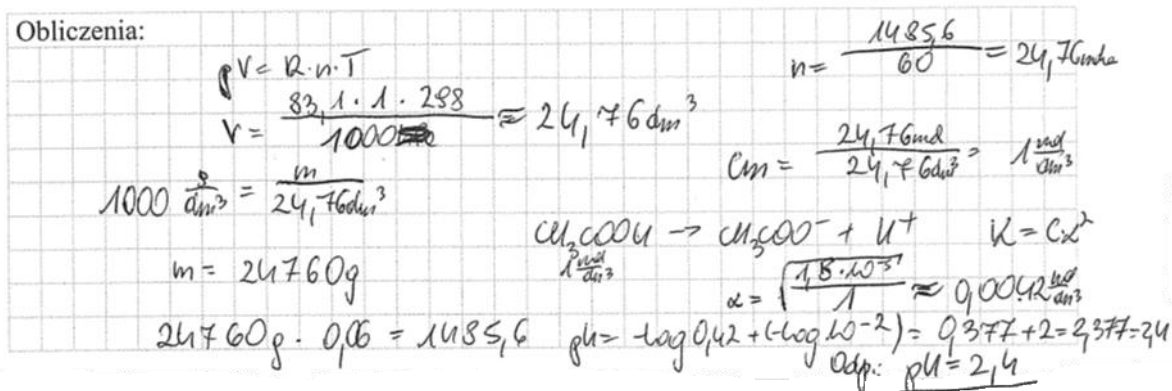 Obliczenia:
pV = R·n·T
V = 83,1·1·298 / 1000 ≈ 24,76 dm³
1000 g/dm³ = m / 24,76dm³
m = 24760g
24760g · 0,06 = 1485,6
n = 1485,6 / 60 = 24,76mola
Cm = 24,76mol / 24,76dm³ = 1 mol/dm³
CH₃COOH → CH₃COO⁻ + H⁺ K = Cα²
1 mol/dm³
α = √(1,8·10⁻⁵ / 1) ≈ 0,0042 mol/dm³
pH = -log 0,42 + (-log 10⁻²) = 0,377 + 2 = 2,377 = 2,4
Odp.: pH = 2,4